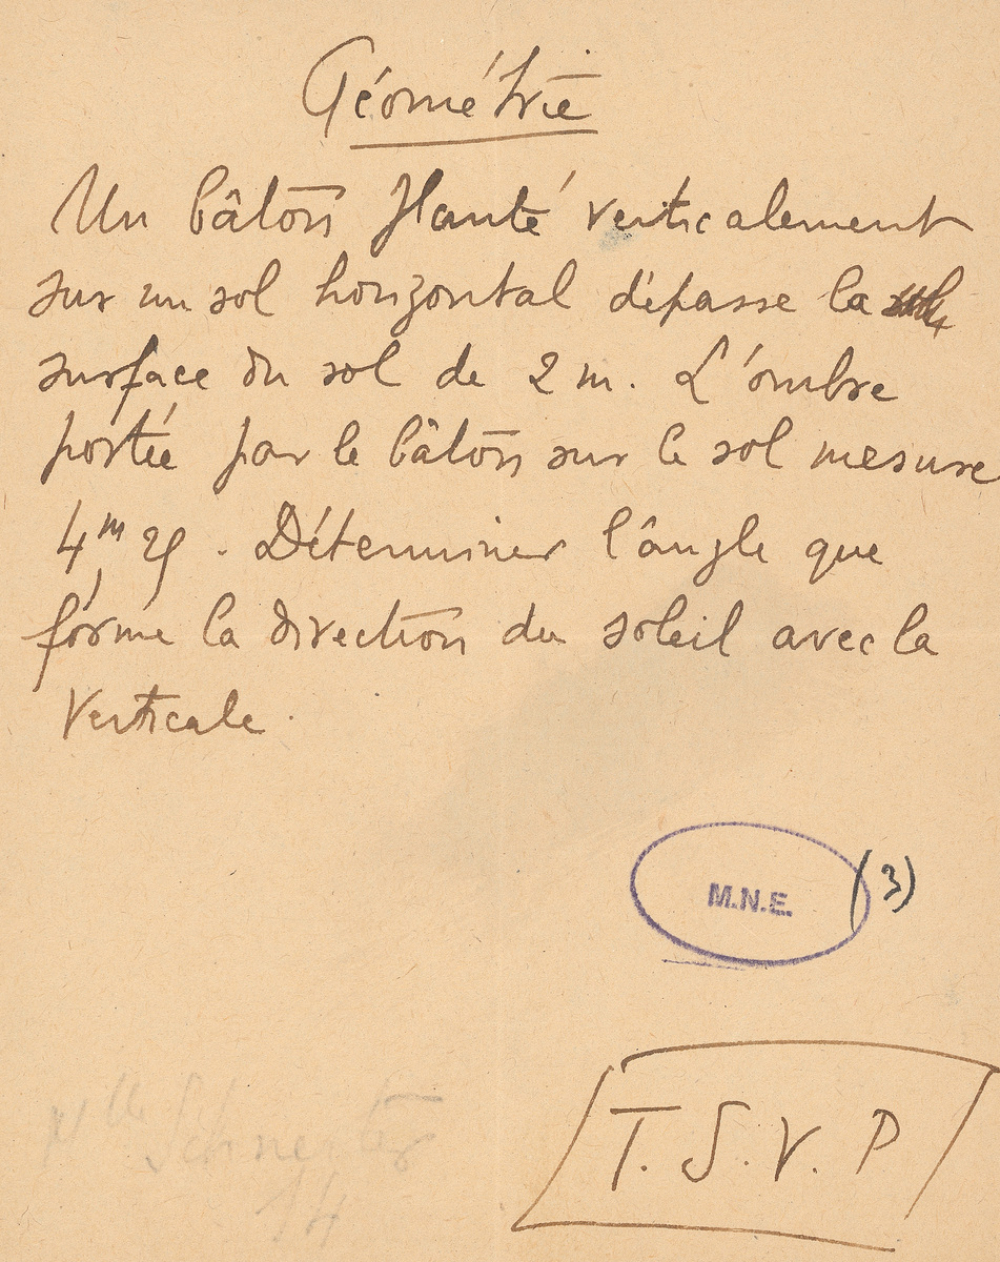 Géométrie
Un bâton planté verticalement
sur un sol horizontal dépasse la
surface du sol de 2 m. L'ombre
portée par le bâton sur le sol mesure
4,m 25. Déterminer l'angle que
forme la direction du soleil avec la
verticale.
M.N.E. (3)
T.S.V.P
Mlle
14